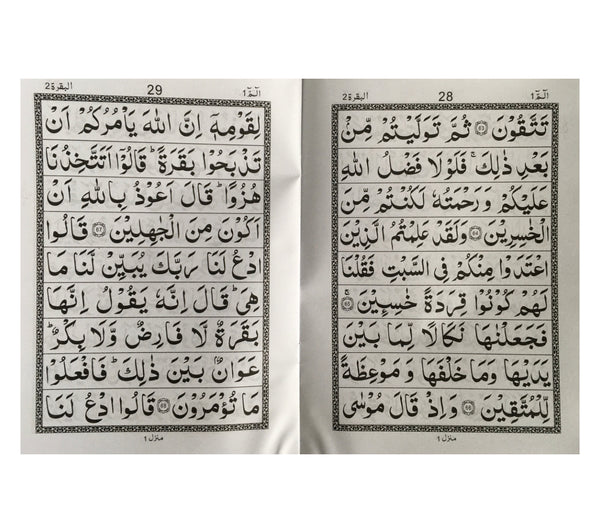 الٓمّٓ ١ 28 البقرة ٢
تَتَّقُوْنَ ﴿٦٣﴾ ثُمَّ تَوَلَّيْتُمْ مِّنْۢ
بَعْدِ ذٰلِكَ ۚ فَلَوْلَا فَضْلُ اللّٰهِ
عَلَيْكُمْ وَ رَحْمَتُهٗ لَكُنْتُمْ مِّنَ
الْخٰسِرِيْنَ ﴿٦٤﴾ وَلَقَدْ عَلِمْتُمُ الَّذِيْنَ
اعْتَدَوْا مِنْكُمْ فِى السَّبْتِ فَقُلْنَا
لَهُمْ كُوْنُوْا قِرَدَةً خٰسِـِٕيْنَ ۚ ﴿٦٥﴾
فَجَعَلْنٰهَا نَكَالًا لِّمَا بَيْنَ
يَدَيْهَا وَمَا خَلْفَهَا وَ مَوْعِظَةً
لِّلْمُتَّقِيْنَ ﴿٦٦﴾ وَ اِذْ قَالَ مُوْسٰى
منزل ١
الٓمّٓ ١ 29 البقرة ٢
لِقَوْمِهٖۤ اِنَّ اللّٰهَ يَاْمُرُكُمْ اَنْ
تَذْبَحُوْا بَقَرَةً ؕ قَالُوْۤا اَتَتَّخِذُنَا
هُزُوًا ؕ قَالَ اَعُوْذُ بِاللّٰهِ اَنْ
اَكُوْنَ مِنَ الْجٰهِلِيْنَ ﴿٦٧﴾ قَالُوا
ادْعُ لَنَا رَبَّكَ يُبَيِّنْ لَّنَا مَا
هِىَ ؕ قَالَ اِنَّهٗ يَقُوْلُ اِنَّهَا
بَقَرَةٌ لَّا فَارِضٌ وَّلَا بِكْرٌ ؕ
عَوَانٌۢ بَيْنَ ذٰلِكَ ؕ فَافْعَلُوْا
مَا تُؤْمَرُوْنَ ﴿٦٨﴾ قَالُوا ادْعُ لَنَا
منزل ١